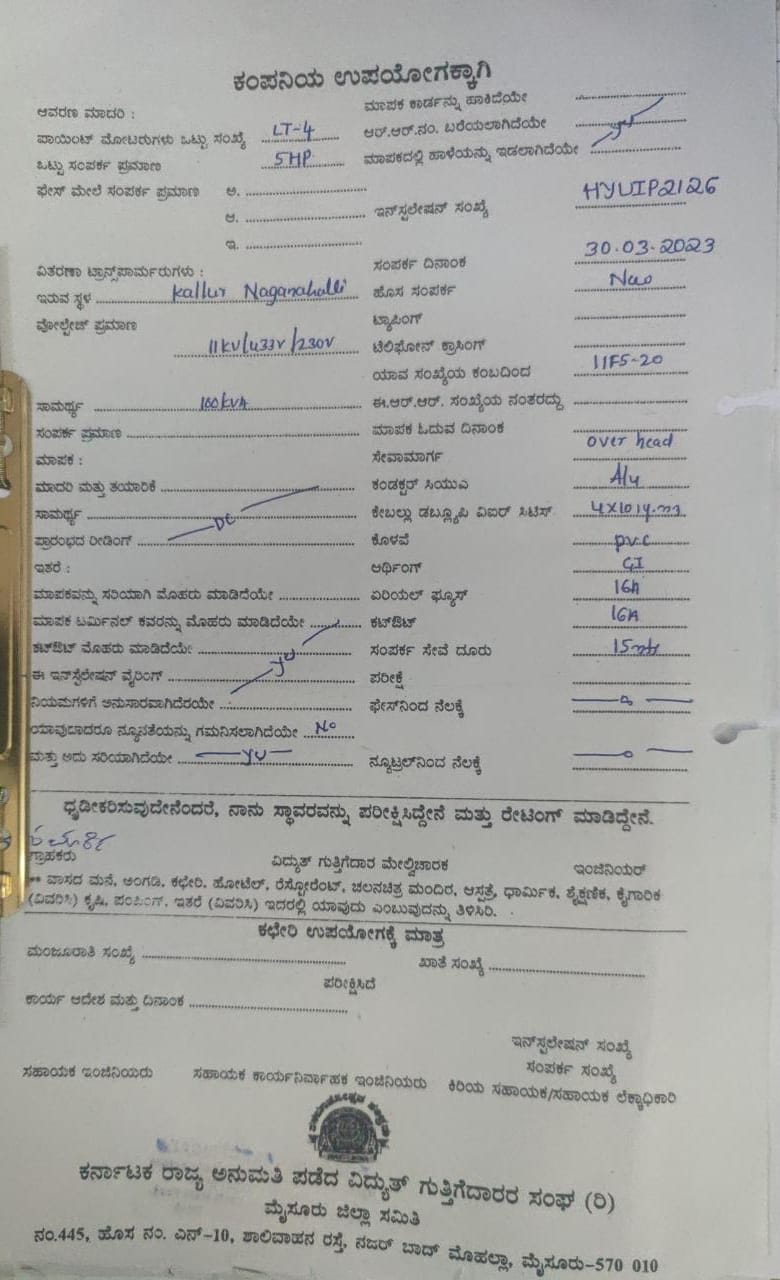 ಕಂಪನಿಯ ಉಪಯೋಗಕ್ಕಾಗಿ
ಆವರಣ ಮಾದರಿ : ಮಾಪಕ ಕಾರ್ಡನ್ನು ಹಾಕಿದೆಯೇ
ಪಾಯಿಂಟ್ ಮೋಟರುಗಳು ಒಟ್ಟು ಸಂಖ್ಯೆ LT-4 ಆರ್.ಆರ್.ನಂ. ಬರೆಯಲಾಗಿದೆಯೇ
ಒಟ್ಟು ಸಂಪರ್ಕ ಪ್ರಮಾಣ 5HP ಮಾಪಕದಲ್ಲಿ ಹಾಳೆಯನ್ನು ಇಡಲಾಗಿದೆಯೇ
ಫೇಸ್ ಮೇಲೆ ಸಂಪರ್ಕ ಪ್ರಮಾಣ ಅ.
ಆ. ಇನ್‌ಸ್ಟಲೇಷನ್ ಸಂಖ್ಯೆ HYUIP2126
ಇ.
ವಿತರಣಾ ಟ್ರಾನ್ಸ್‌ಫಾರ್ಮರುಗಳು : ಸಂಪರ್ಕ ದಿನಾಂಕ 30.03.2023
ಇರುವ ಸ್ಥಳ Kallur Naganahalli ಹೊಸ ಸಂಪರ್ಕ
ವೋಲ್ಟೇಜ್ ಪ್ರಮಾಣ ಟ್ಯಾಪಿಂಗ್
11KV/433V/230V ಟೆಲಿಫೋನ್ ಕ್ರಾಸಿಂಗ್
ಯಾವ ಸಂಖ್ಯೆಯ ಕಂಬದಿಂದ 11F5-20
ಸಾಮರ್ಥ್ಯ 100KVA ಈ.ಆರ್.ಆರ್. ಸಂಖ್ಯೆಯ ನಂತರದ್ದು
ಸಂಪರ್ಕ ಪ್ರಮಾಣ ಮಾಪಕ ಓದುವ ದಿನಾಂಕ
ಮಾಪಕ : ಸೇವಾಮಾರ್ಗ over head
ಮಾದರಿ ಮತ್ತು ತಯಾರಿಕೆ ಕಂಡಕ್ಟರ್ ಸಿಯುಎ Alu
ಸಾಮರ್ಥ್ಯ DC ಕೇಬಲ್ಲು ಡಬ್ಲ್ಯೂಪಿ ವಿಐಆರ್ ಸಿಟಿಸ್
ಪ್ರಾರಂಭದ ರೀಡಿಂಗ್ ಕೊಳವೆ pvc
ಇತರೆ : ಆರ್ಥಿಂಗ್ GI
ಮಾಪಕವನ್ನು ಸರಿಯಾಗಿ ಮೊಹರು ಮಾಡಿದೆಯೇ ಏರಿಯಲ್ ಫ್ಯೂಸ್ 16A
ಮಾಪಕ ಟರ್ಮಿನಲ್ ಕವರನ್ನು ಮೊಹರು ಮಾಡಿದೆಯೇ ಕಟ್‌ಔಟ್ 16A
ಕಟ್‌ಔಟ್ ಮೊಹರು ಮಾಡಿದೆಯೇ ಸಂಪರ್ಕ ಸೇವೆ ದೂರು 15mts
ಈ ಇನ್‌ಸ್ಟೆಲೇಷನ್ ವೈರಿಂಗ್ ಪರೀಕ್ಷೆ
ನಿಯಮಗಳಿಗೆ ಅನುಸಾರವಾಗಿದೆರಯೇ ಫೇಸ್‌ನಿಂದ ನೆಲಕ್ಕೆ
ಯಾವುದಾದರೂ ನ್ಯೂನತೆಯನ್ನು ಗಮನಿಸಲಾಗಿದೆಯೇ No
ಮತ್ತು ಅದು ಸರಿಯಾಗಿದೆಯೇ ನ್ಯೂಟ್ರಲ್‌ನಿಂದ ನೆಲಕ್ಕೆ
ಧೃಡೀಕರಿಸುವುದೇನೆಂದರೆ, ನಾನು ಸ್ಥಾವರವನ್ನು ಪರೀಕ್ಷಿಸಿದ್ದೇನೆ ಮತ್ತು ರೇಟಿಂಗ್ ಮಾಡಿದ್ದೇನೆ.
ಗ್ರಾಹಕರು ವಿದ್ಯುತ್ ಗುತ್ತಿಗೆದಾರ ಮೇಲ್ವಿಚಾರಕ ಇಂಜಿನಿಯರ್
** ವಾಸದ ಮನೆ, ಅಂಗಡಿ, ಕಛೇರಿ, ಹೋಟೆಲ್, ರೆಸ್ಟೋರೆಂಟ್, ಚಲನಚಿತ್ರ ಮಂದಿರ, ಆಸ್ಪತ್ರೆ, ಧಾರ್ಮಿಕ, ಶೈಕ್ಷಣಿಕ, ಕೈಗಾರಿಕ
(ವಿವರಿಸಿ) ಕೃಷಿ, ಪಂಪಿಂಗ್, ಇತರೆ (ವಿವರಿಸಿ) ಇದರಲ್ಲಿ ಯಾವುದು ಎಂಬುವುದನ್ನು ತಿಳಿಸಿರಿ.
ಕಛೇರಿ ಉಪಯೋಗಕ್ಕೆ ಮಾತ್ರ
ಮಂಜೂರಾತಿ ಸಂಖ್ಯೆ ಖಾತೆ ಸಂಖ್ಯೆ
ಪರೀಕ್ಷಿಸಿದೆ
ಕಾರ್ಯ ಆದೇಶ ಮತ್ತು ದಿನಾಂಕ
ಇನ್‌ಸ್ಟಲೇಷನ್ ಸಂಖ್ಯೆ
ಸಂಪರ್ಕ ಸಂಖ್ಯೆ
ಸಹಾಯಕ ಇಂಜಿನಿಯರು ಸಹಾಯಕ ಕಾರ್ಯನಿರ್ವಾಹಕ ಇಂಜಿನಿಯರು ಕಿರಿಯ ಸಹಾಯಕ/ಸಹಾಯಕ ಲೆಕ್ಕಾಧಿಕಾರಿ
ಕರ್ನಾಟಕ ರಾಜ್ಯ ಅನುಮತಿ ಪಡೆದ ವಿದ್ಯುತ್ ಗುತ್ತಿಗೆದಾರರ ಸಂಘ (ರಿ)
ಮೈಸೂರು ಜಿಲ್ಲಾ ಸಮಿತಿ
ನಂ.445, ಹೊಸ ನಂ. ಎನ್-10, ಶಾಲಿವಾಹನ ರಸ್ತೆ, ನಜರ್ ಬಾದ್ ಮೊಹಲ್ಲಾ, ಮೈಸೂರು-570 010